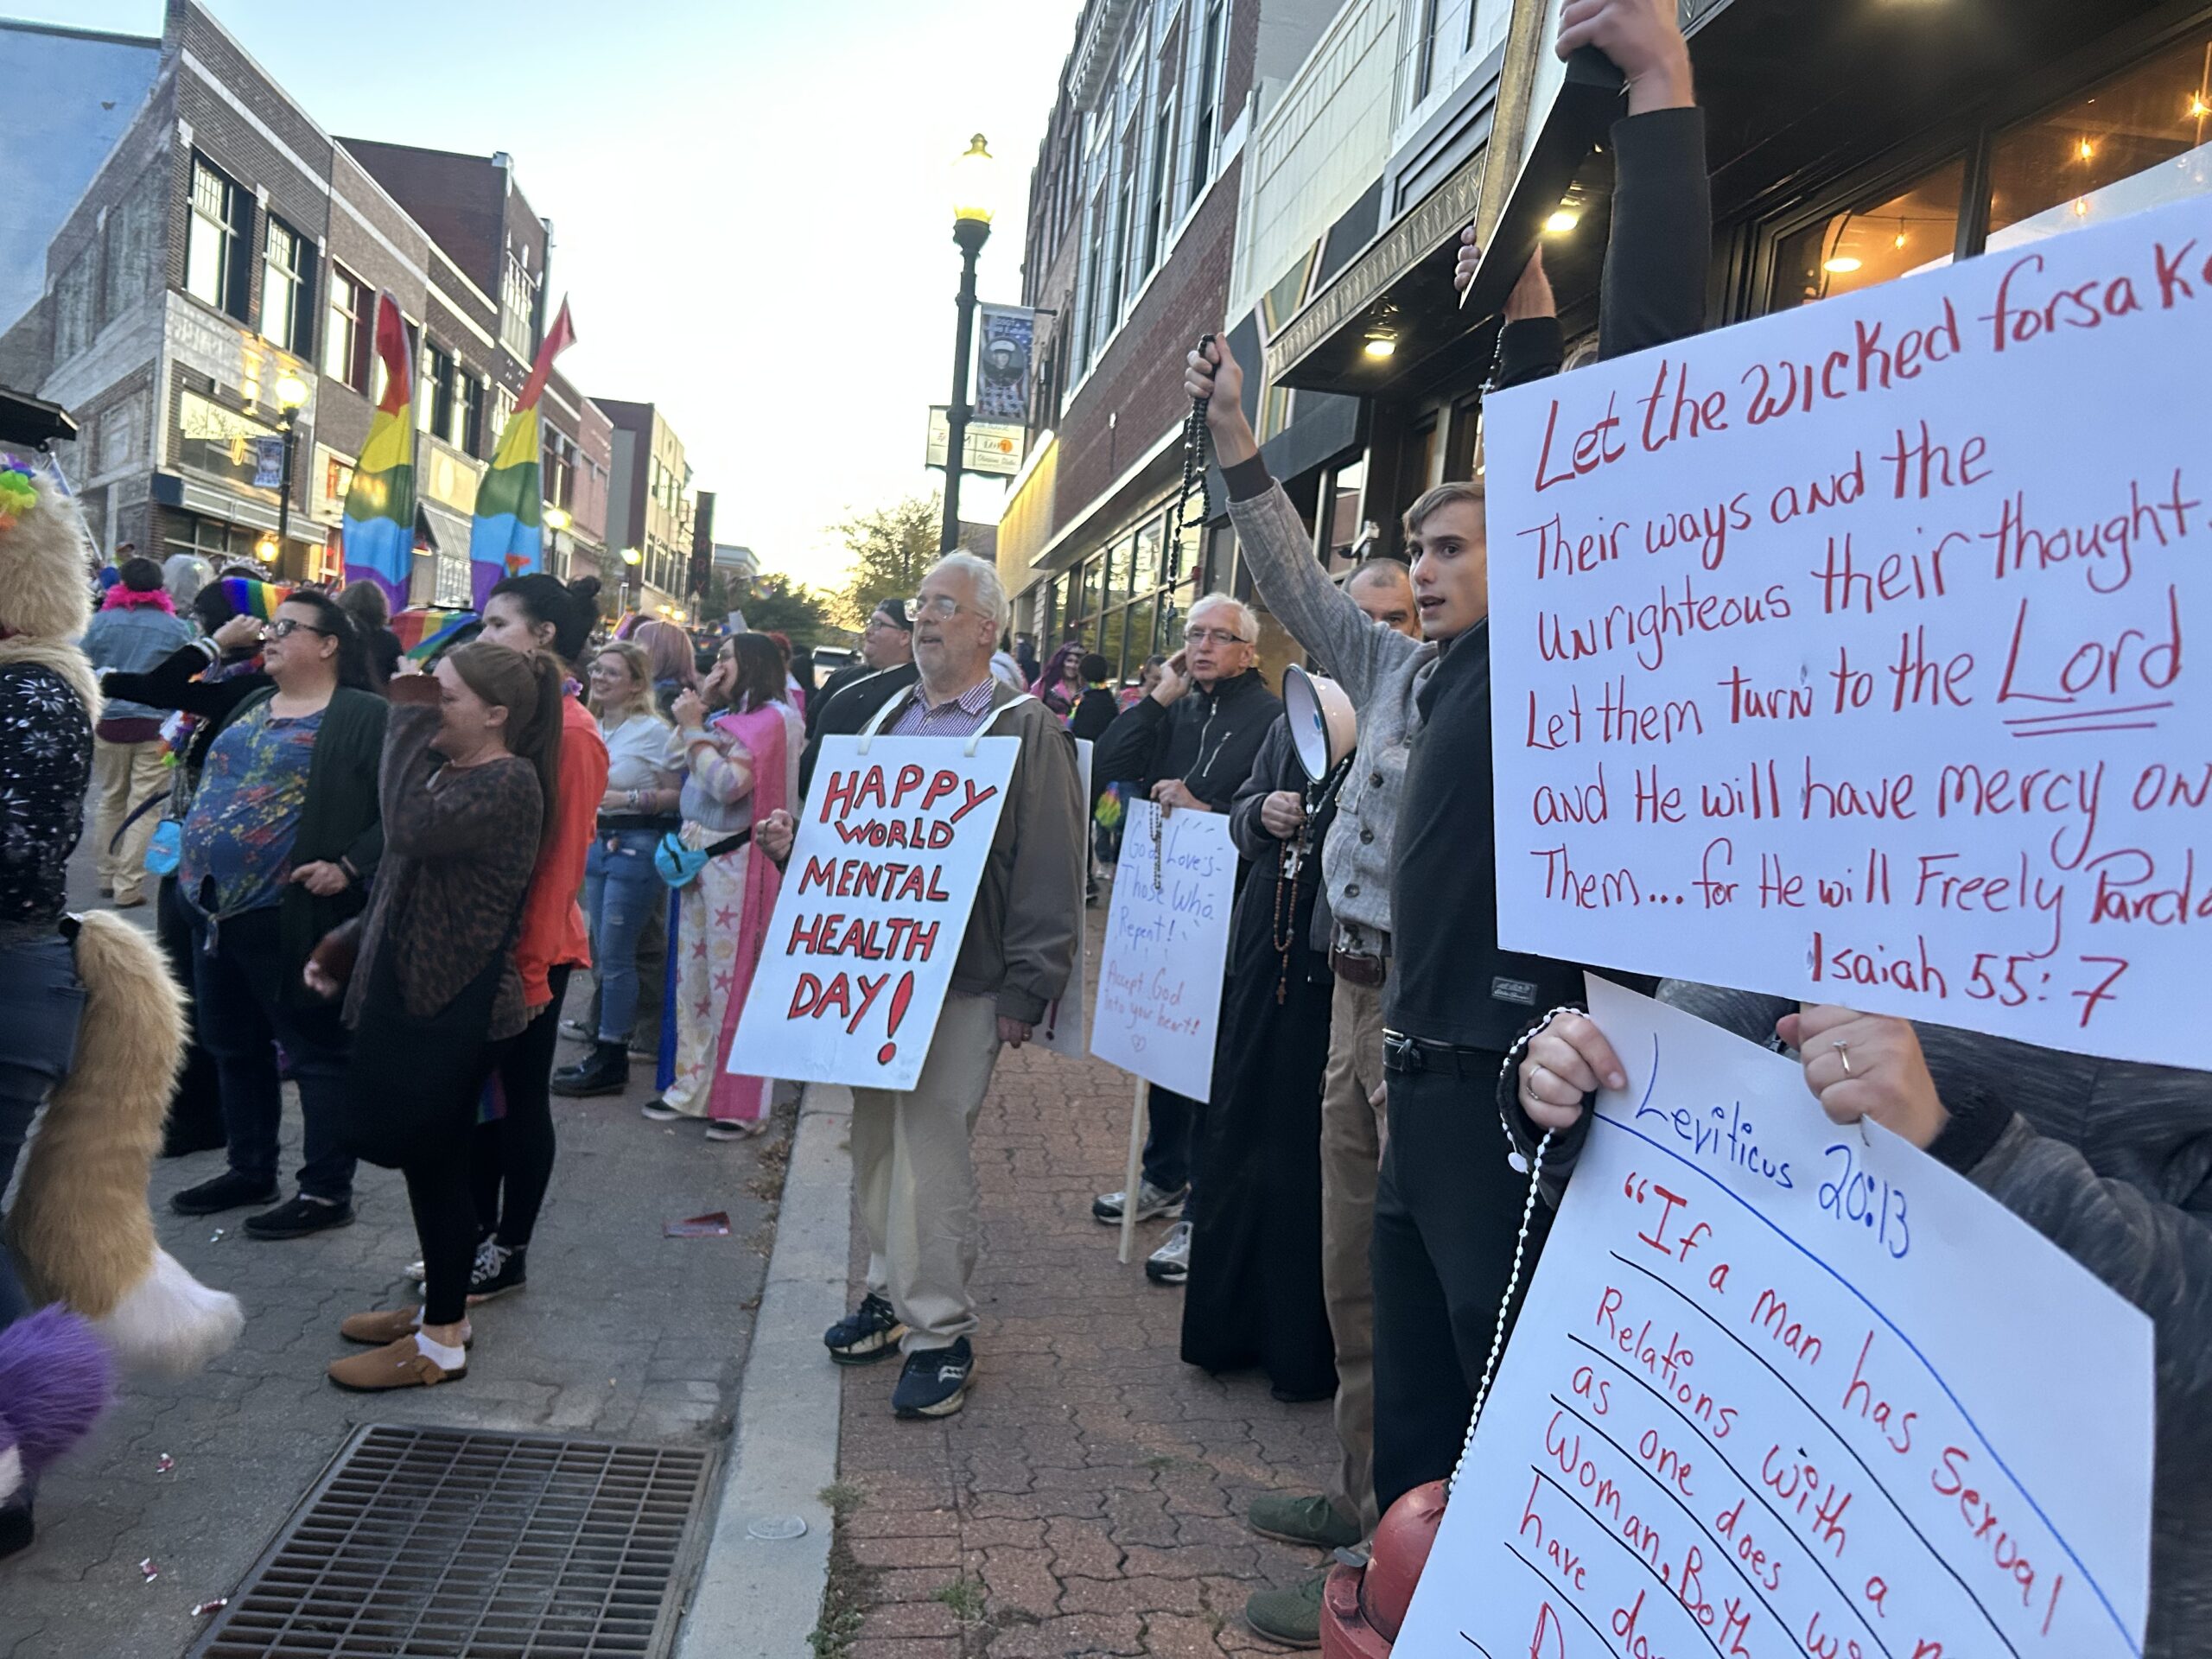 HAPPY
WORLD
MENTAL
HEALTH
DAY!
God Loves
Those Who
Repent!
Accept God
into your heart!
Let the wicked
Their ways and the
Unrighteous their thought
Let them turn to the Lord
and He will have mercy on
Them... for He will Freely
Isaiah 55:7
Leviticus 20:13
"If a man has sexual
Relations with a
as one does
Woman, Both
have